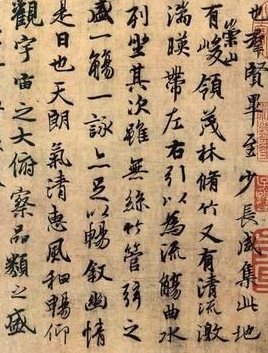 也群賢畢至少長咸集此地
有崇山峻領茂林脩竹又有清流激
湍暎帶左右引以為流觴曲水
列坐其次雖無絲竹管弦之
盛一觴一詠亦足以暢敘幽情
是日也天朗氣清惠風和暢仰
觀宇宙之大俯察品類之盛